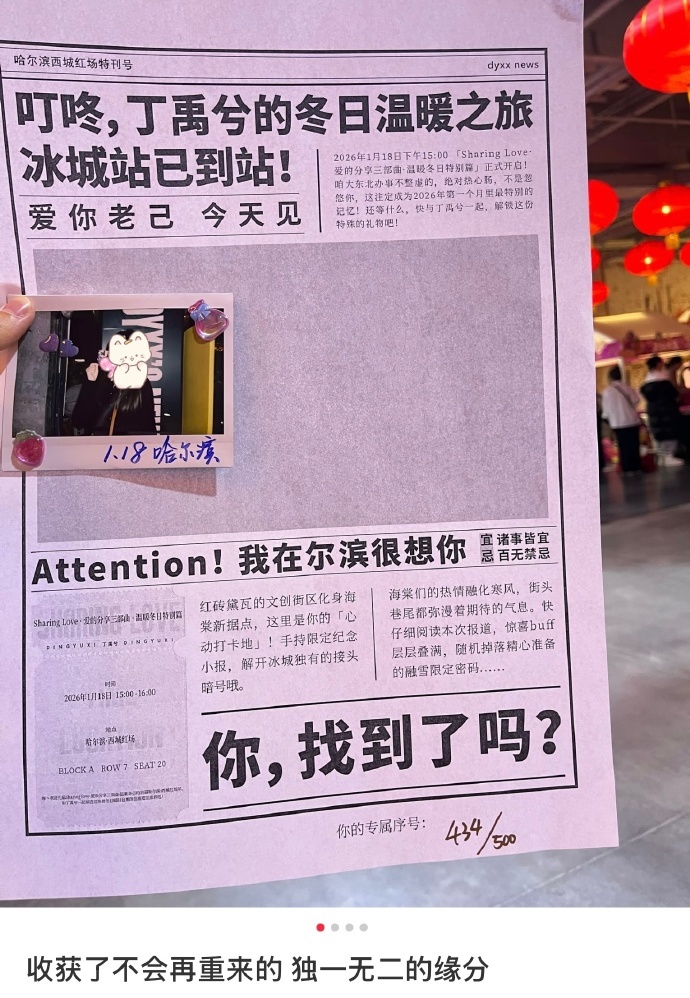 哈尔滨西城红场特刊号
dyxx news
叮咚，丁禹兮的冬日温暖之旅
冰城站已到站！
爱你老己 今天见
2026年1月18日下午15:00「Sharing Love·
爱的分享三部曲·温暖冬日特别篇」正式开启！
咱大东北办事不整虚的，绝对热心肠，不是忽
悠你，这注定成为2026年第一个月里最特别的
记忆！还等什么，快与丁禹兮一起，解锁这份
特殊的礼物吧！
1.18 哈尔滨
Attention！我在尔滨很想你
宜 诸事皆宜
忌 百无禁忌
Sharing Love·爱的分享三部曲·温暖冬日特别篇
DINGYUXI 丁禹兮 DINGYUXI
时间
2026年1月18日 15:00-16:00
地点
哈尔滨·西城红场
BLOCK A ROW 7 SEAT 20
红砖黛瓦的文创街区化身海
棠新据点，这里是你的「心
动打卡地」！手持限定纪念
小报，解开冰城独有的接头
暗号哦。
海棠们的热情融化寒风，街头
巷尾都弥漫着期待的气息。快
仔细阅读本次报道，惊喜buff
层层叠满，随机掉落精心准备
的融雪限定密码……
你，找到了吗？
你的专属序号：
434/500
收获了不会再重来的 独一无二的缘分